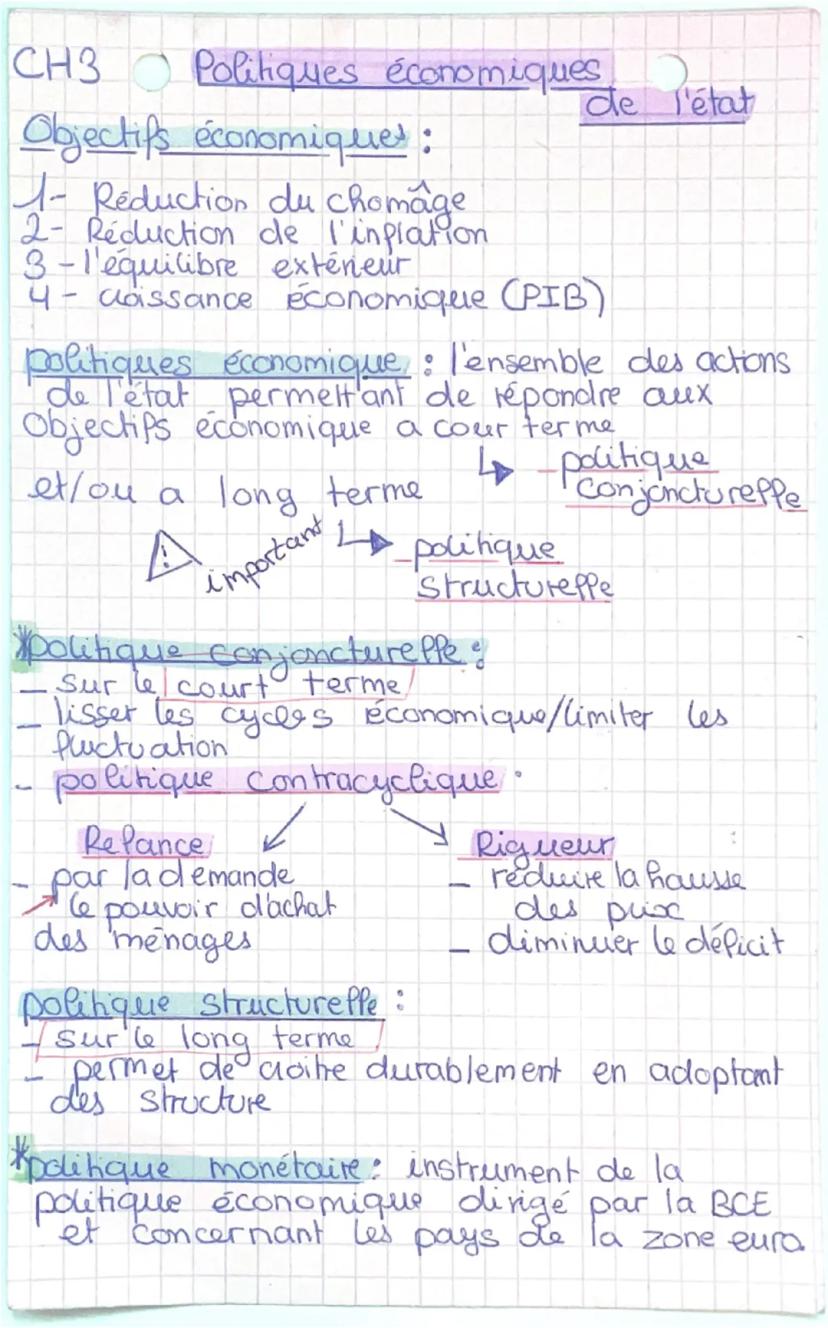 CH3 Politiques économiques
de l'état
Objectifs économiques :
1- Réduction du chomâge
2- Réduction de l'inflation
3 - l'équilibre extérieur
4 - croissance économique (PIB)
politiques économique : l'ensemble des actions
de l'état permettant de répondre aux
Objectifs économique a cour terme
- politique
conjoncturelle
et/ou a long terme
important
- politique
structurelle
*politique conjoncturelle :
- sur le court terme
- lisser les cycles économique/limiter les
fluctuation
- politique contracyclique :
Relance
- par la demande
↗ le pouvoir d'achat
des ménages
Rigueur
- réduire la hausse
des prix
- diminuer le déficit
politique structurelle :
- sur le long terme
- permet de croitre durablement en adoptant
des structure
*politique monétaire : instrument de la
politique économique dirigé par la BCE
et concernant les pays de la zone euro